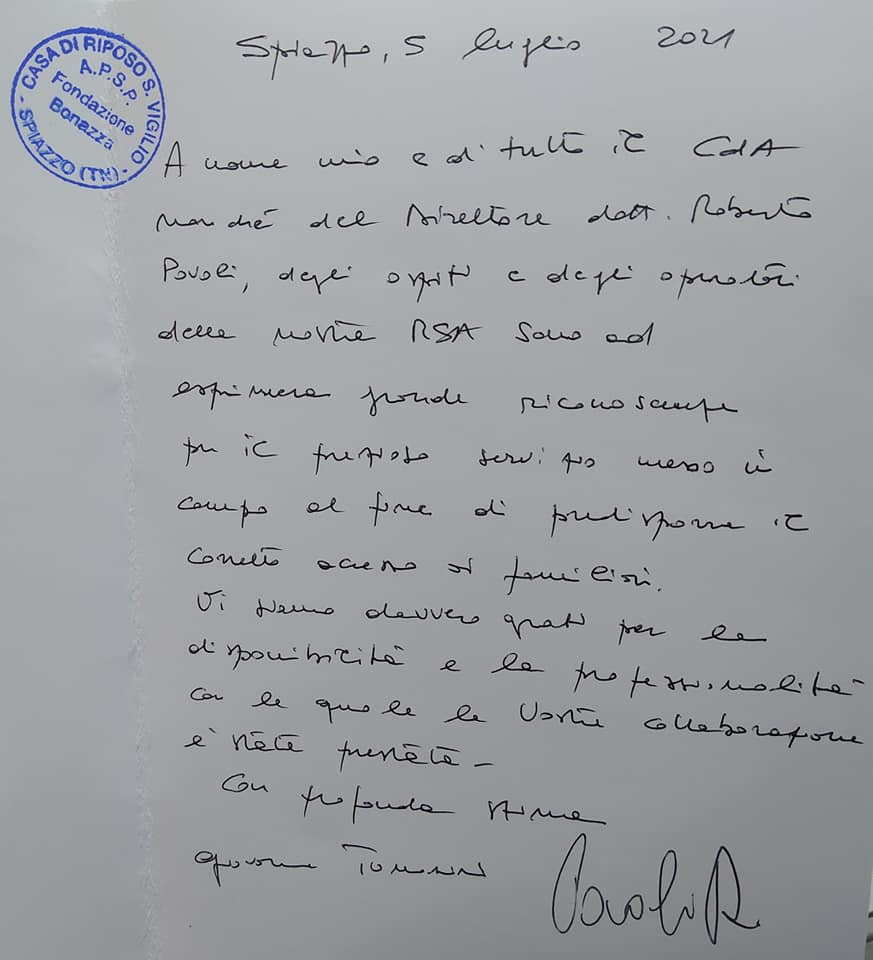 CASA DI RIPOSO S. VIGILIO - SPIAZZO (TN) -
A.P.S.P.
Fondazione
Bonazza
Spiazzo, 5 luglio 2021
A nome mio e di tutto il CdA
nonché del Direttore dott. Roberto
Povoli, degli ospiti e degli operatori
della nostra RSA sono ad
esprimere grande riconoscenza
per il prezioso servizio messo in
campo al fine di predisporre il
corretto accesso ai familiari.
Vi siamo davvero grati per la
disponibilità e la professionalità
con le quale la Vostra collaborazione
è stata prestata -
Con profonda stima
Tomasini
Povoli R